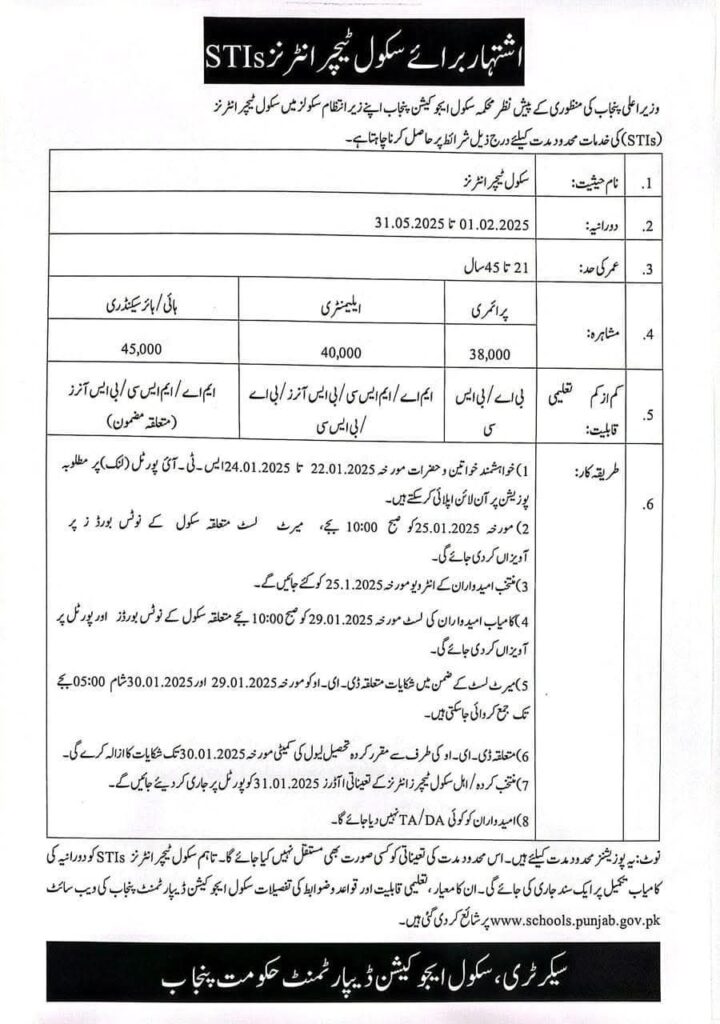 اشتہار برائے سکول ٹیچر انٹرنز STIs
وزیر اعلی پنجاب کی منظوری کے پیش نظر محکمہ سکول ایجوکیشن پنجاب اپنے زیر انتظام سکولز میں سکول ٹیچر انٹرنز
(STIs) کی خدمات محدود مدت کیلئے درج ذیل شرائط پر حاصل کرنا چاہتا ہے۔
1. نام حیثیت: سکول ٹیچر انٹرنز
2. دورانیہ: 01.02.2025 تا 31.05.2025
3. عمر کی حد: 21 تا 45 سال
4. مشاہرہ: پرائمری ایلیمنٹری ہائی/ہائر سیکنڈری
38,000 40,000 45,000
5. کم از کم تعلیمی بی اے/بی ایس ایم اے/ایم ایس سی/بی ایس آنرز/بی اے ایم اے/ایم ایس سی/بی ایس آنرز
قابلیت: سی /بی ایس سی (متعلقہ مضمون)
6. طریقہ کار: 1) خواہشمند خواتین و حضرات مورخہ 22.01.2025 تا 24.01.2025 ایس۔ٹی۔آئی پورٹل (لنک) پر مطلوبہ
پوزیشن پر آن لائن اپلائی کر سکتے ہیں۔
2) مورخہ 25.01.2025 کو صبح 10:00 بجے، میرٹ لسٹ متعلقہ سکول کے نوٹس بورڈ ز پر
آویزاں کر دی جائے گی۔
3) منتخب امیدواران کے انٹرویو مورخہ 25.1.2025 کو کئے جائیں گے۔
4) کامیاب امیدواران کی لسٹ مورخہ 29.01.2025 کو صبح 10:00 بجے متعلقہ سکول کے نوٹس بورڈز اور پورٹل پر
آویزاں کر دی جائے گی۔
5) میرٹ لسٹ کے ضمن میں شکایات متعلقہ ڈی۔ای۔او کو مورخہ 29.01.2025 اور 30.01.2025 شام 05:00 بجے
تک جمع کروائی جاسکتی ہیں۔
6) متعلقہ ڈی۔ای۔او کی طرف سے مقرر کردہ تحصیل لیول کی کمیٹی مورخہ 30.01.2025 تک شکایات کا ازالہ کرے گی۔
7) منتخب کردہ/اہل سکول ٹیچرز انٹرنز کے تعیناتی آرڈرز 31.01.2025 کو پورٹل پر جاری کر دیئے جائیں گے۔
8) امیدواران کو کوئی TA/DA نہیں دیا جائے گا۔
نوٹ: یہ پوزیشنز محدود مدت کیلئے ہیں۔ اس محدود مدت کی تعیناتی کو کسی صورت بھی مستقل نہیں کیا جائے گا۔ تاہم سکول ٹیچر انٹرنز STIs کو دورانیہ کی
کامیاب تکمیل پر ایک سند جاری کی جائے گی۔ ان کا معیار، تعلیمی قابلیت اور قواعد و ضوابط کی تفصیلات سکول ایجوکیشن ڈیپارٹمنٹ پنجاب کی ویب سائٹ
www.schools.punjab.gov.pk پر شائع کر دی گئی ہیں۔
سیکرٹری، سکول ایجوکیشن ڈیپارٹمنٹ حکومت پنجاب